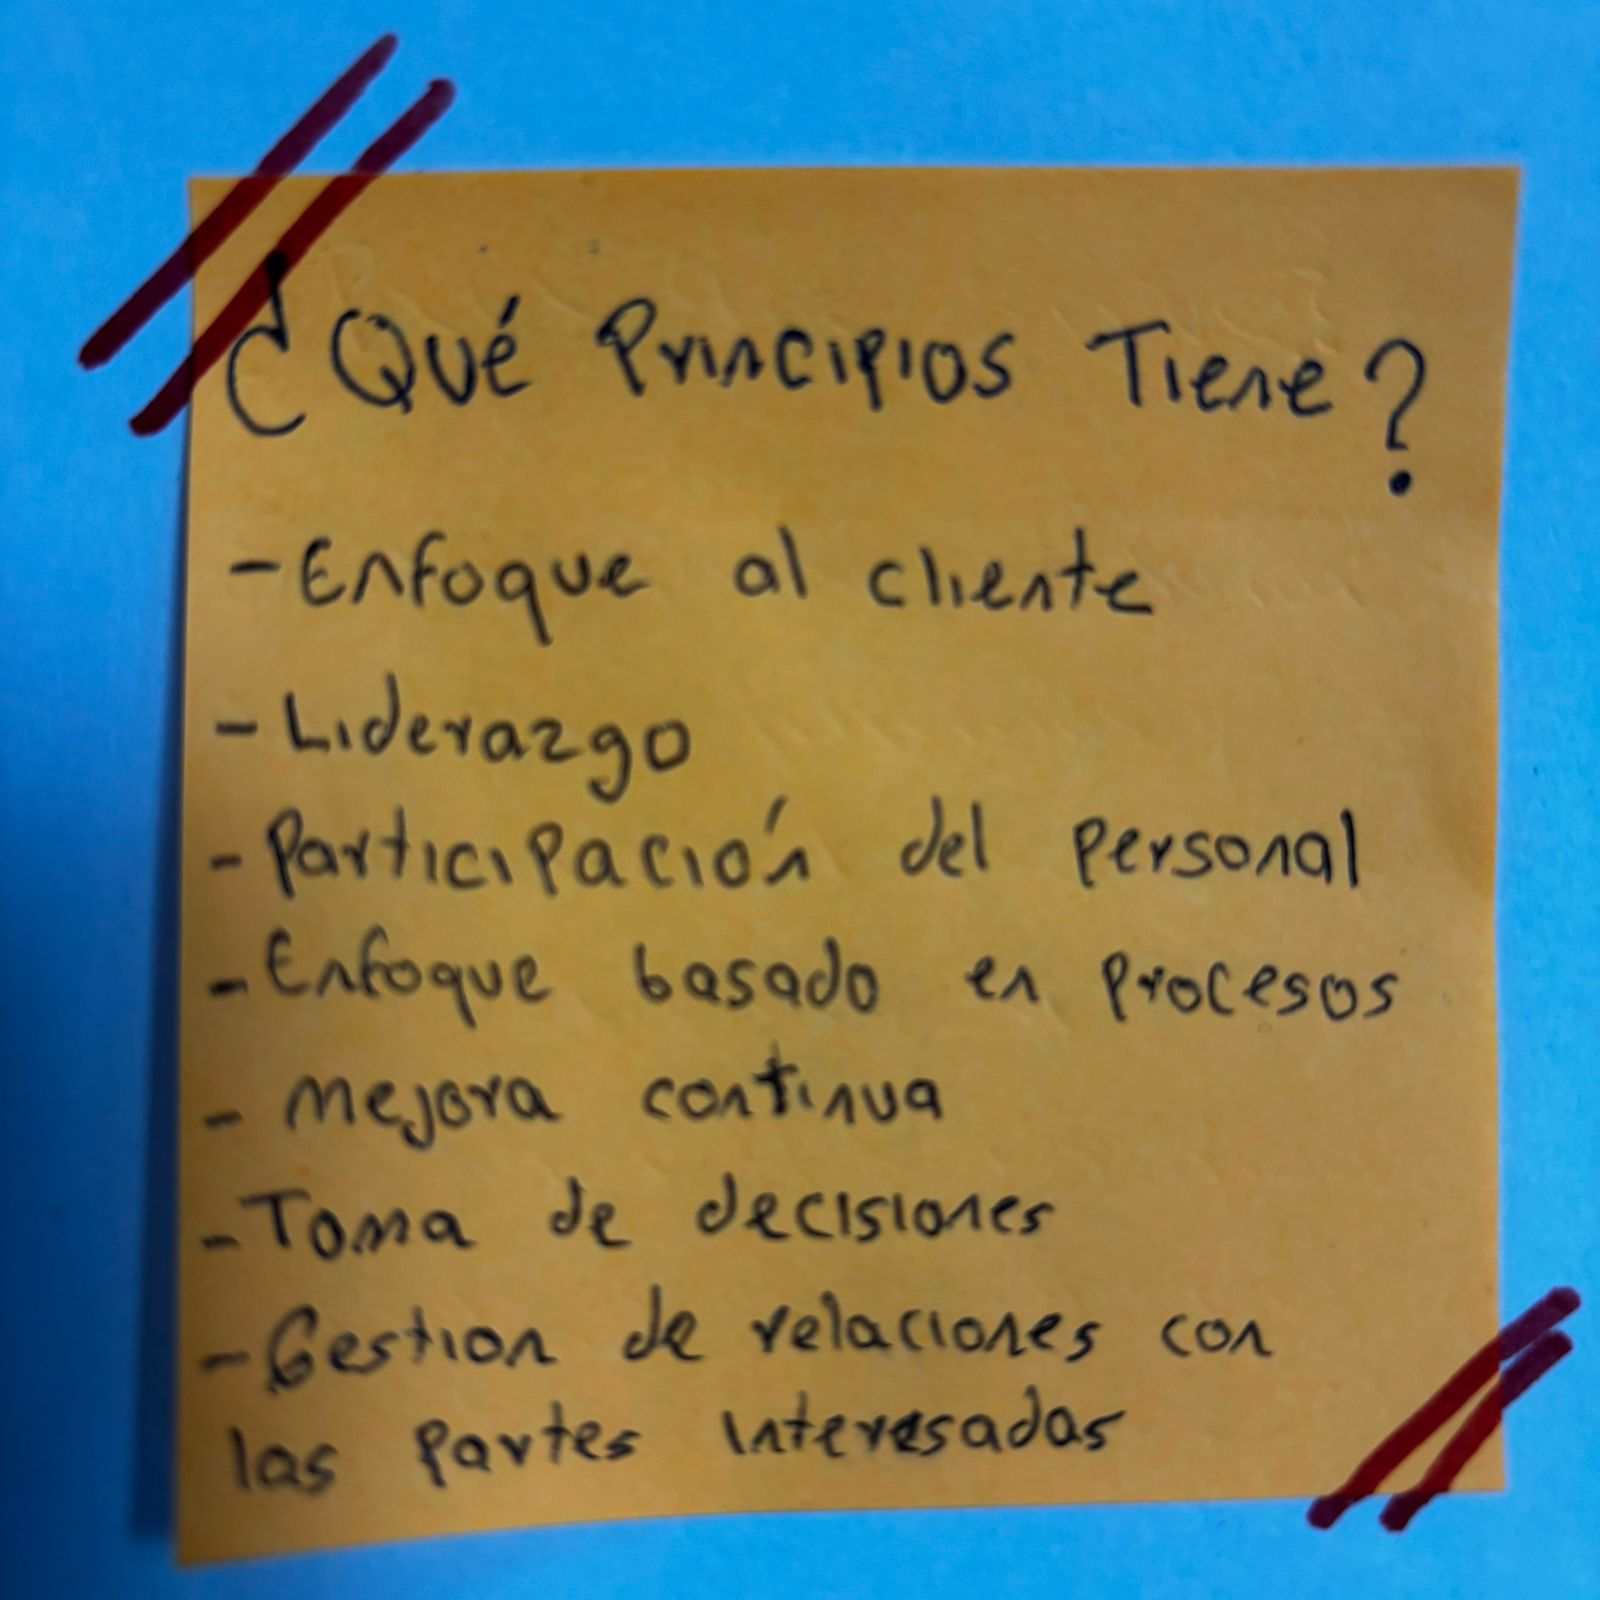 ¿Qué Principios Tiene?
- Enfoque al cliente
- Liderazgo
- Participación del personal
- Enfoque basado en procesos
- mejora continua
- Toma de decisiones
- Gestion de relaciones con
las partes interesadas